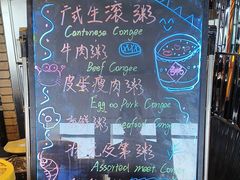 广式生滚粥
Cantonese Congee
牛肉粥
Beef Congee
皮蛋瘦肉粥
Egg Pork Congee
海鲜粥 Seafood Congee
皮菜粥
Assorted meat Con